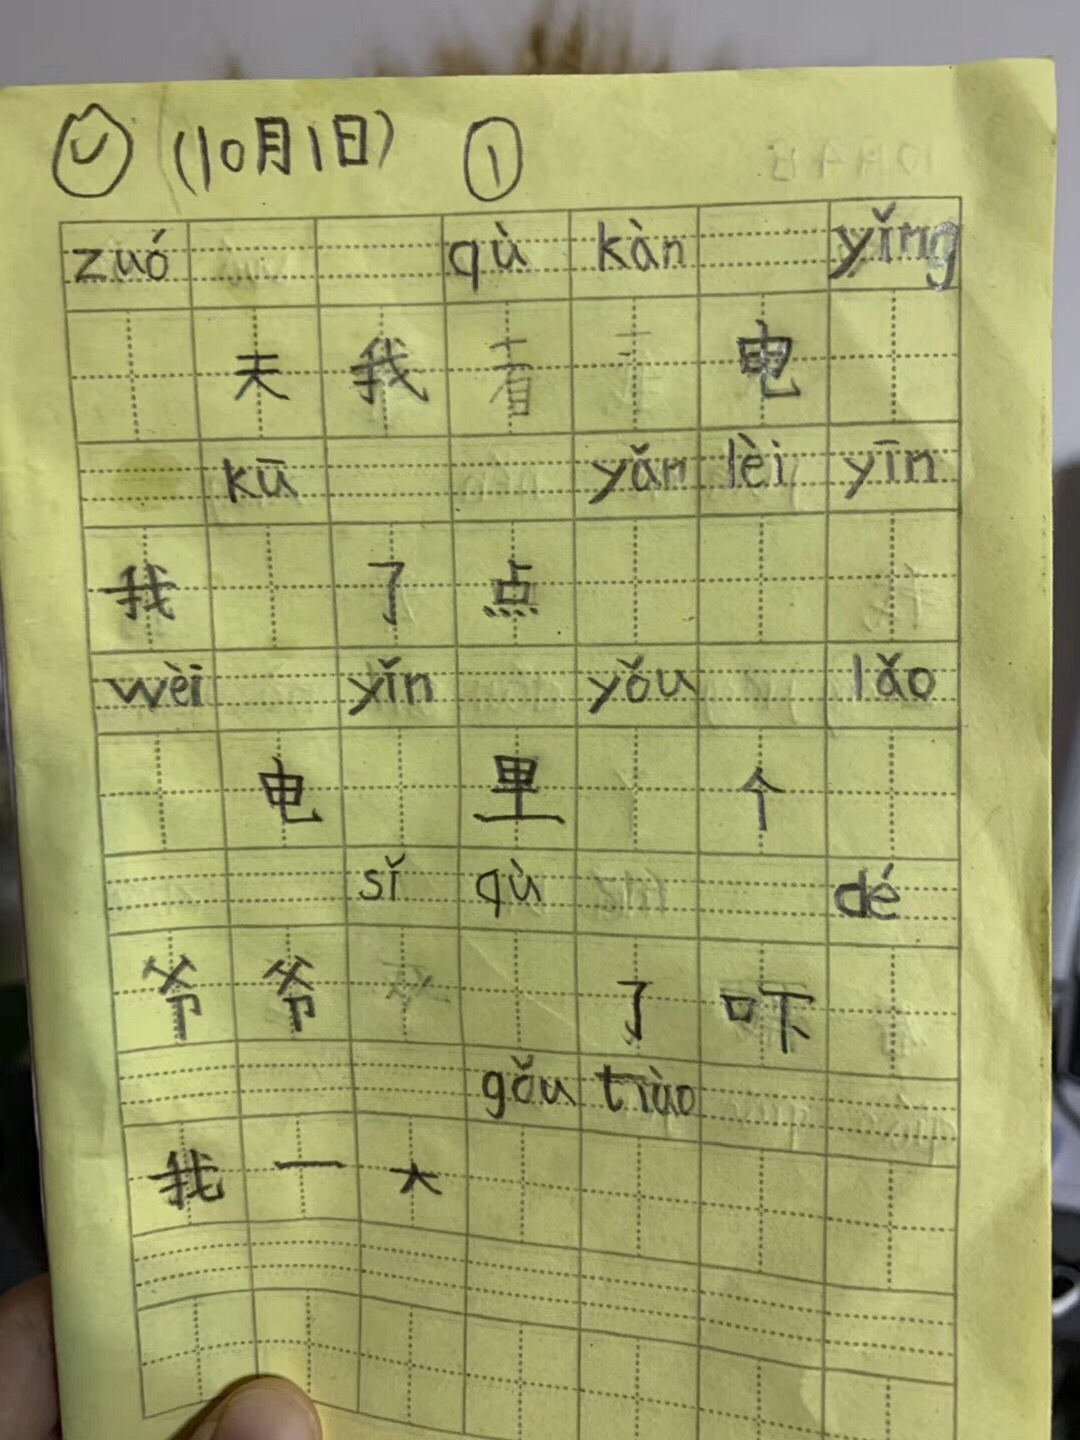 (10月1日) ①
zuó qù kàn yǐng
天 我 电
kū yǎn lèi yīn
我 了 点
wèi yǐn yǒu lǎo
电 里 个
sǐ qù dé
爷 爷 了 吓
gǒu tiào
我 一 大